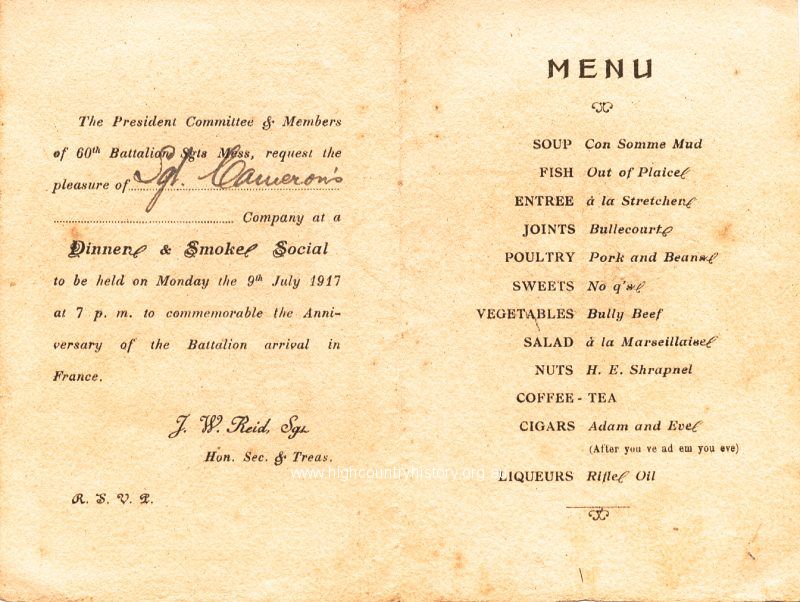 The President Committee & Members
of 60th Battalion Sgts Mess, request the
pleasure of Sgt. Cameron's
Company at a
Dinner & Smoke Social
to be held on Monday the 9th July 1917
at 7 p. m. to commemorable the Anni-
versary of the Battalion arrival in
France.
J. W. Reid, Sgt
Hon. Sec. & Treas.
R. S. V. P.
MENU
SOUP Con Somme Mud
FISH Out of Plaice
ENTREE à la Stretcher
JOINTS Bullecourt
POULTRY Pork and Beans
SWEETS No q's
VEGETABLES Bully Beef
SALAD à la Marseillaise
NUTS H. E. Shrapnel
COFFEE - TEA
CIGARS Adam and Eve
(After you ve ad em you eve)
LIQUEURS Rifle Oil
www.highcountryhistory.org.au